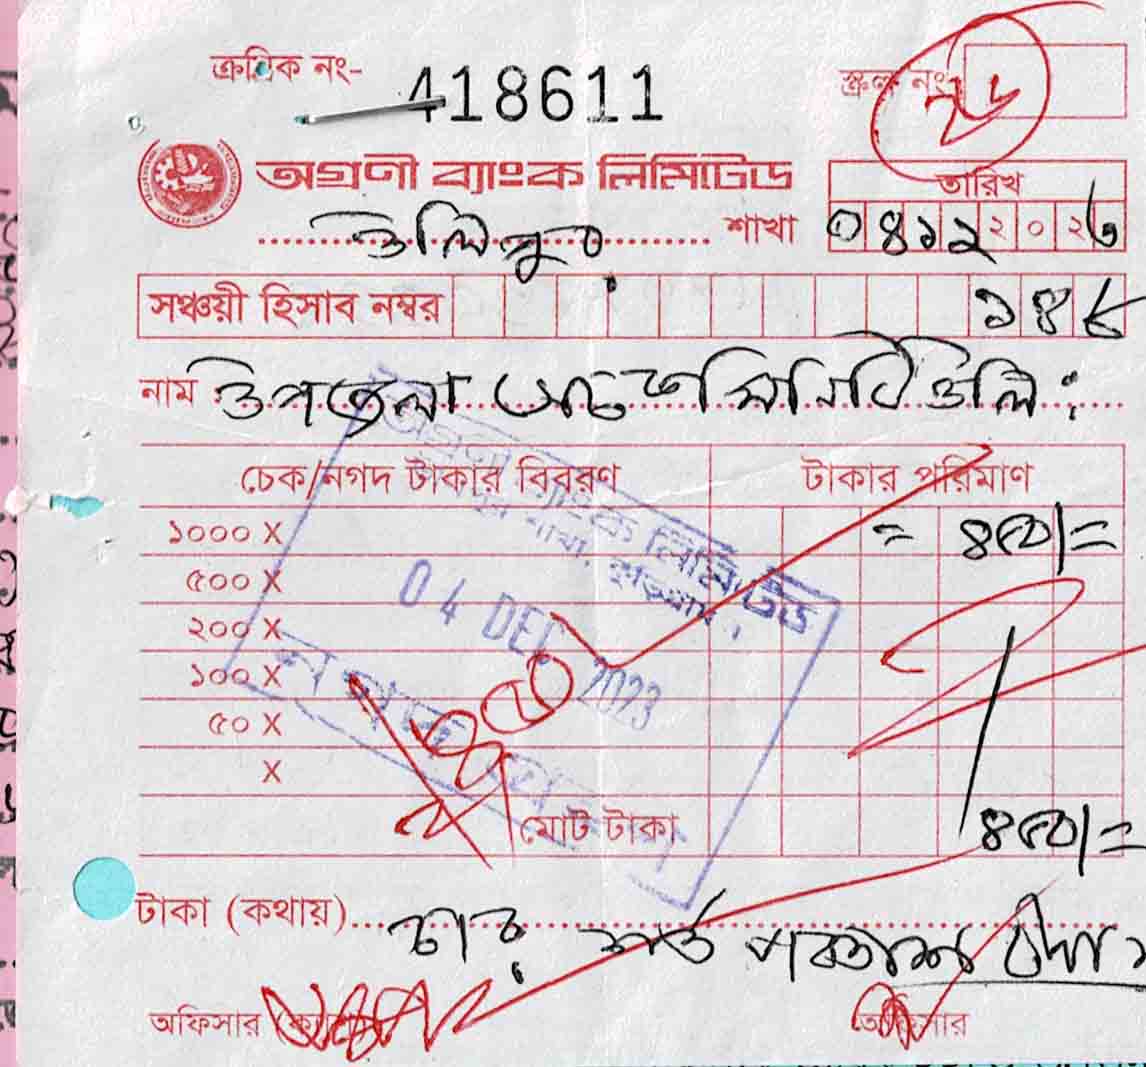 ক্রমিক নং- 418611
স্ক্রল নং
অগ্রণী ব্যাংক লিমিটেড
তারিখ
উলিপুর শাখা
০৪১২২০২৩
সঞ্চয়ী হিসাব নম্বর ১৪৮
নাম উপজেলা
চেক/নগদ টাকার বিবরণ টাকার পরিমাণ
১০০০ X = ৪৫০/=
৫০০ X
২০০ X
১০০ X
৫০ X
X
মোট টাকা ৪৫০/=
অগ্রণী ব্যাংক লিমিটেড
শাখা, কুড়িগ্রাম।
04 DEC 2023
নগদ গ্রহণ
৪৫০/
টাকা (কথায়) চার শত পঞ্চাশ টাকা
অফিসার অফিসার